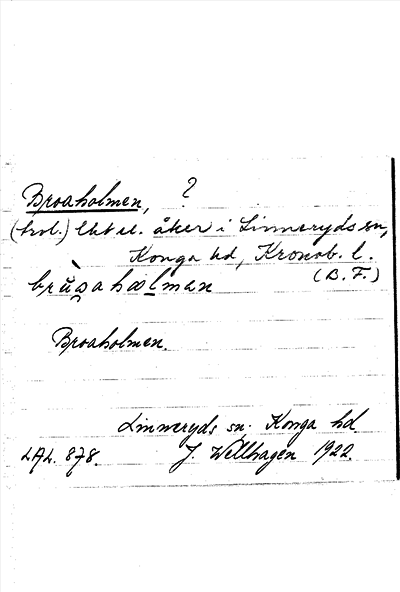 Broaholmen, ?
(trol.) lbt el. åker i Linneryds sn,
Konga hd, Kronob. l.
(B. F.)
Broaholmen.
Linneryds sn. Konga hd.
LAL. 878. J. Wellhagen 1922.